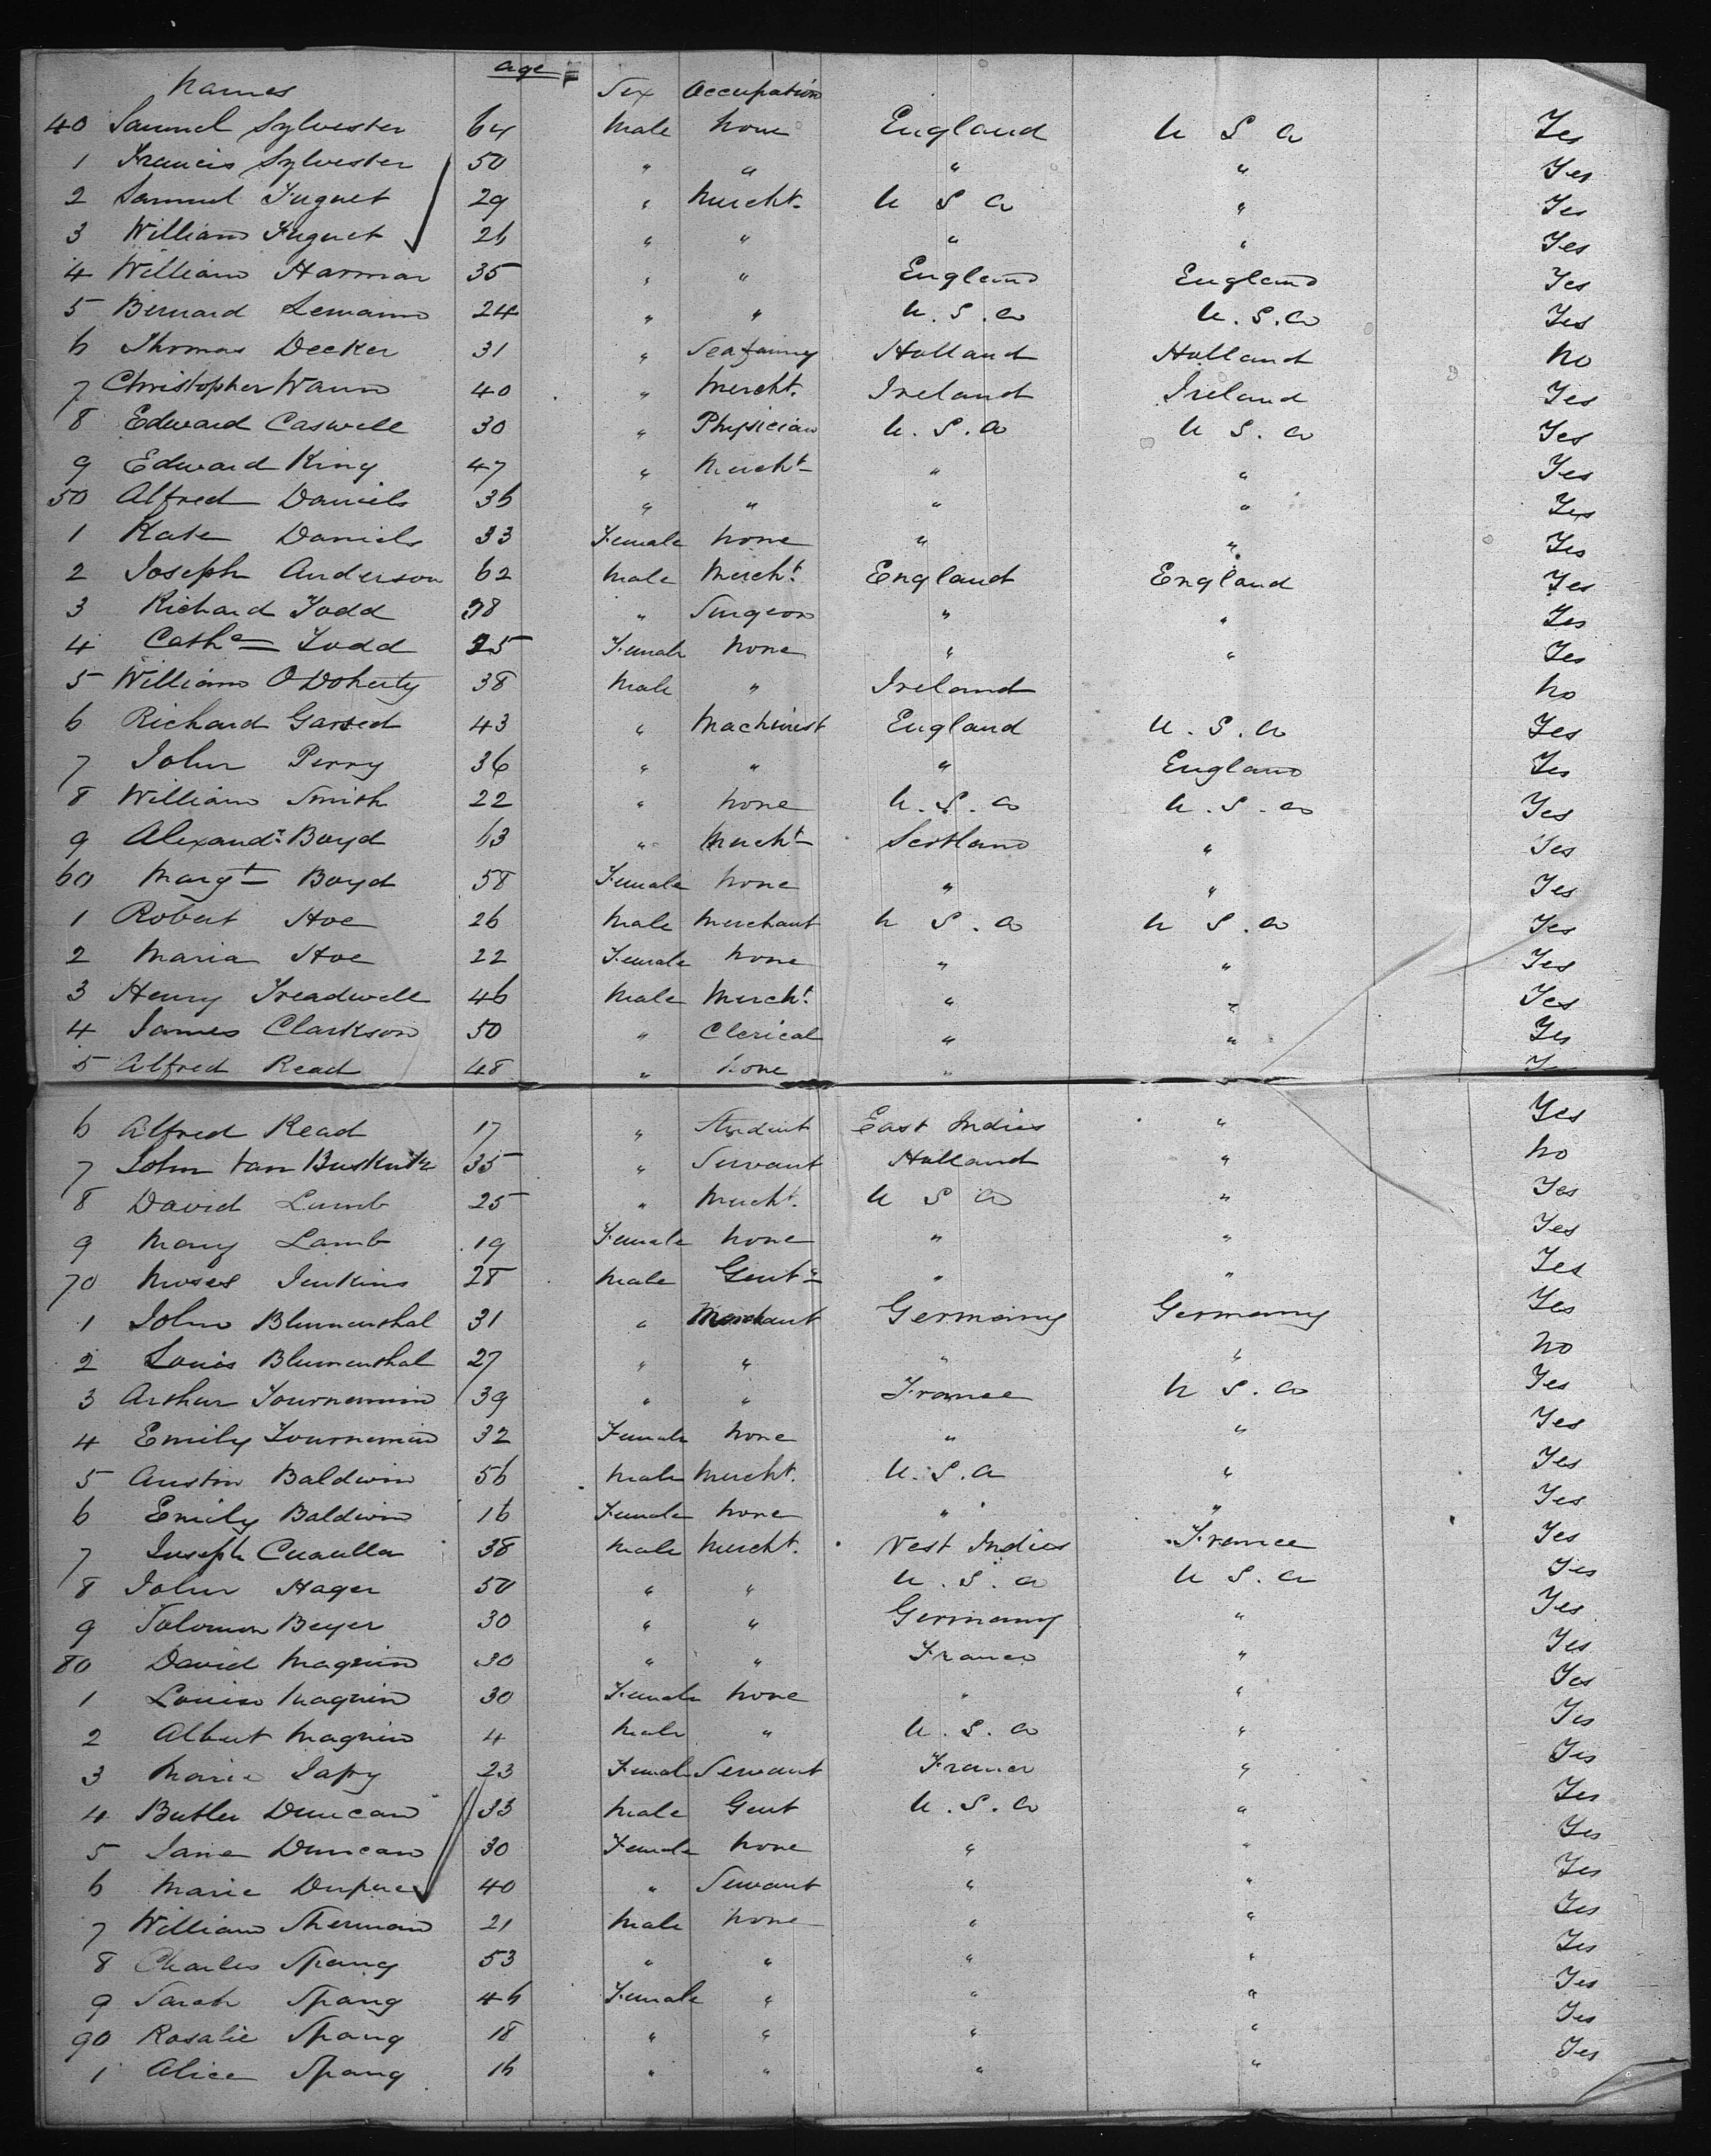 Names age Sex Occupation
40 Samuel Sylvester 64 Male None England U S A Yes
1 Francis Sylvester 50 " " " " Yes
2 Samuel Fuguet 29 " Mercht. U S A " Yes
3 William Fuguet 26 " " " " Yes
4 William Harman 35 " " England England Yes
5 Bernard 24 " " U.S.A U.S.A Yes
6 Thomas Decker 31 " Seafaring Holland Holland No
7 Christopher Wann 40 " Mercht. Ireland Ireland Yes
8 Edward Caswell 30 " Physician U.S.A U S.A Yes
9 Edward King 47 " Mercht " " Yes
50 Alfred Daniels 36 " " " " Yes
1 Kate Daniels 33 Female None " " Yes
2 Joseph Anderson 62 Male Mercht. England England Yes
3 Richard Todd 38 " Surgeon " " Yes
4 Cathe Todd 25 Female None " " Yes
5 William O Doherty 38 Male " Ireland No
6 Richard Garsed 43 " Machinist England U.S.A Yes
7 John Perry 36 " " " England Yes
8 William Smith 22 " None U.S.A U.S.A Yes
9 Alexandr. Boyd 63 " Mercht Scotland " Yes
60 Margt Boyd 58 Female None " " Yes
1 Robert Hoe 26 Male Merchant U S.A U S.A Yes
2 Maria Hoe 22 Female None " " Yes
3 Henry Treadwell 46 Male Mercht. " " Yes
4 James Clarkson 50 " Clerical " " Yes
5 Alfred Read 48 " None "
6 Alfred Read 17 " Student East Indies " Yes
7 John Van Buskirk 35 " Servant Holland " No
8 David Lamb 25 " Mercht. U S A " Yes
9 Mary Lamb 19 Female None " " Yes
70 Moses Jenkins 28 Male Gentn " " Yes
1 John Blumenthal 31 " Merchant Germany Germany Yes
2 Louis Blumenthal 27 " " " " No
3 Arthur Tournemin 39 " " France U S.A Yes
4 Emily Tournemin 32 Female None " " Yes
5 Austin Baldwin 56 Male Mercht. U.S.A " Yes
6 Emily Baldwin 16 Female None " " Yes
7 Joseph 38 Male Mercht. West Indies France Yes
8 John Hager 50 " " U.S.A U S.A Yes
9 Solomon Beyer 30 " " Germany " Yes
80 David Magnin 30 " " France " Yes
1 Louise Magnin 30 Female None " " Yes
2 Albert Magnin 4 Male " U.S.A " Yes
3 Marie Japy 23 Female Servant France " Yes
4 Butler Duncan 33 Male Gent U.S.A " Yes
5 Jane Duncan 30 Female None " " Yes
6 Marie 40 " Servant " " Yes
7 William Sherman 21 Male None " " Yes
8 Charles Spang 53 " " " " Yes
9 Sarah Spang 46 Female " " " Yes
90 Rosalie Spang 18 " " " " Yes
1 Alice Spang 16 " " " " Yes